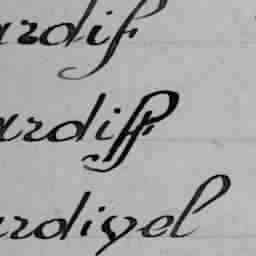 ardif
ardiff
ardigel